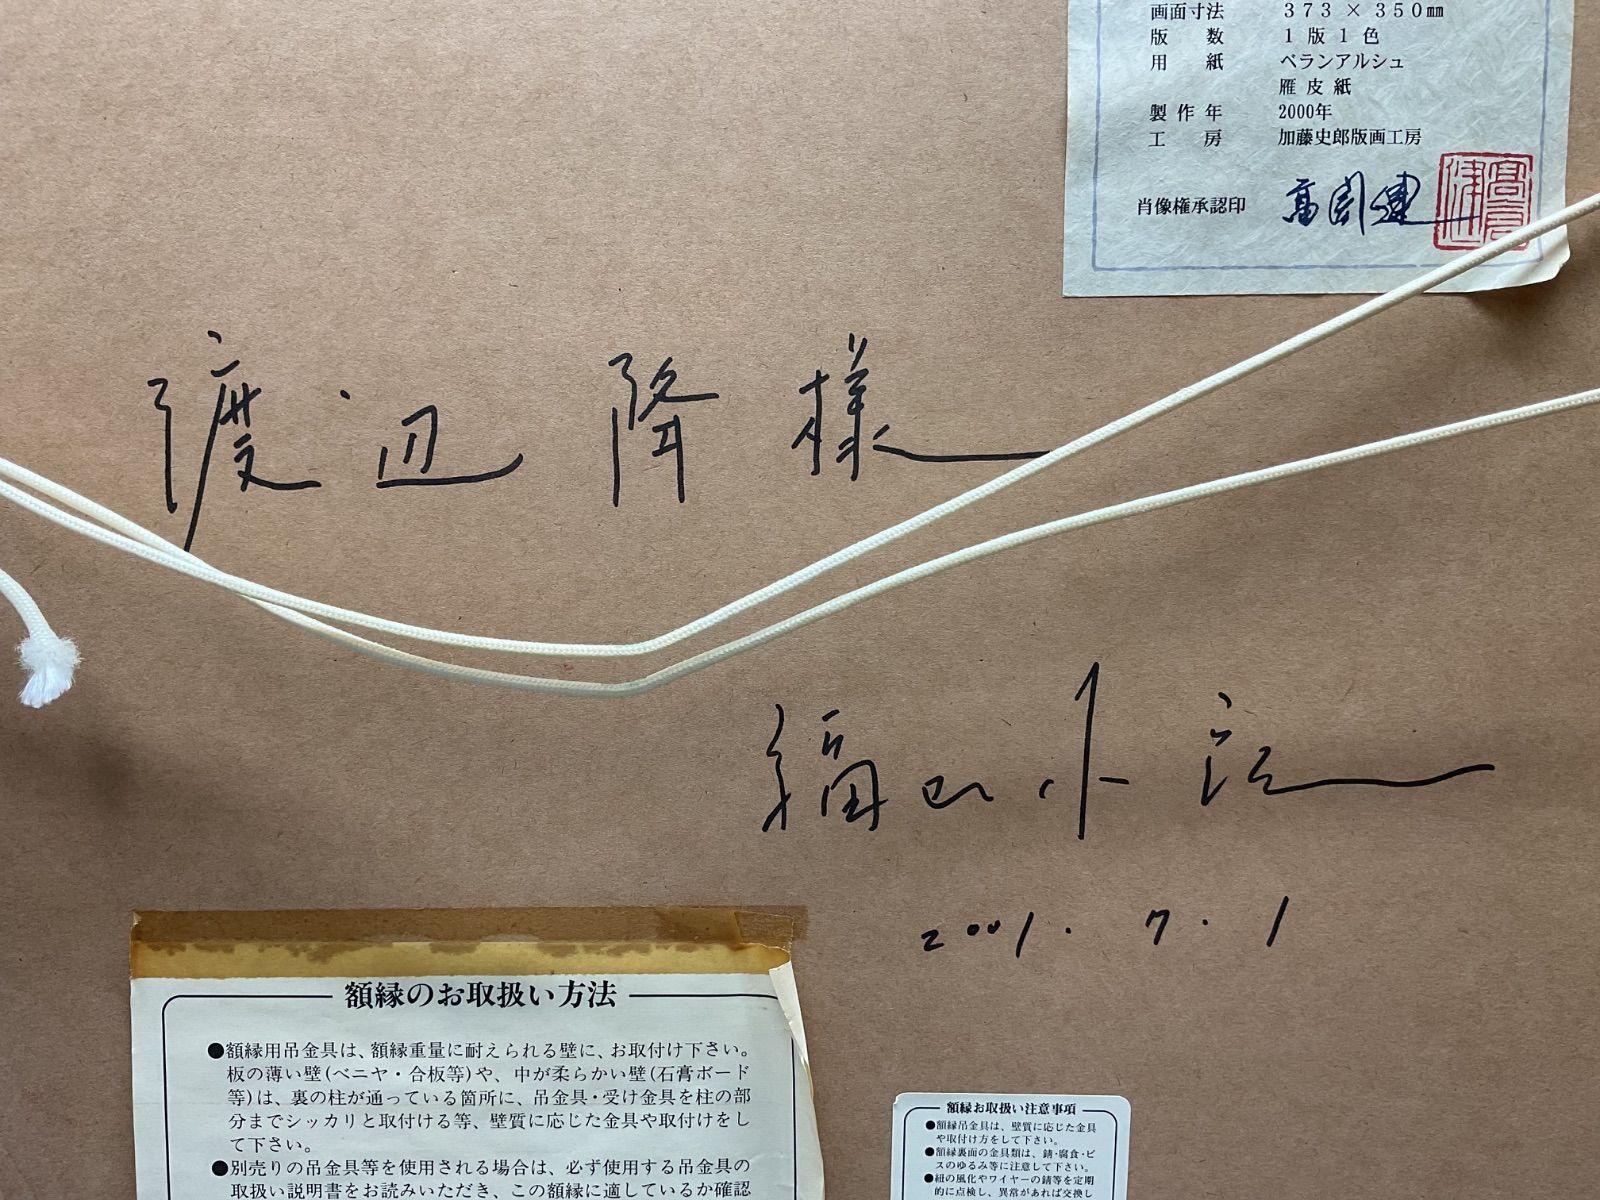 画面寸法 373 × 350㎜
版数 1版1色
用紙 ベランアルシュ
雁皮紙
製作年 2000年
工房 加藤史郎版画工房
肖像権承認印 高倉健
渡辺 隆 様
福山小
2001. 7. 1
額縁のお取扱い方法
●額縁用吊金具は、額縁重量に耐えられる壁に、お取付け下さい。
板の薄い壁(ベニヤ・合板等)や、中が柔らかい壁(石膏ボード
等)は、裏の柱が通っている箇所に、吊金具・受け金具を柱の部
分までシッカリと取付ける等、壁質に応じた金具や取付けをし
て下さい。
●別売りの吊金具等を使用される場合は、必ず使用する吊金具の
取扱い説明書をお読みいただき、この額縁に適しているか確認
額縁お取扱い注意事項
●額縁吊金具は、壁質に応じた金具
や取付け方をして下さい。
●額縁裏面の金具類は、錆・腐食・ビ
スのゆるみ等に注意して下さい。
●紐の風化やワイヤーの錆等を定期
的に点検し、異常があれば交換し